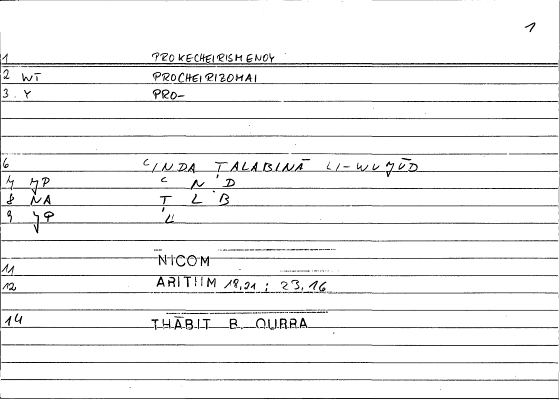 1
1 PROKECHEIRISMENOY
2 WT PROCHEIRIZOMAI
3. Y PRO-
6 ʿINDA ṬALABINĀ LI-WUǦŪD
7 ǦP ʿ N D
8 NA Ṭ L B
9 ǦP LI
NICOM
11
12 ARITHM 19,21 ; 23,16
14 THĀBIT B. QURRA